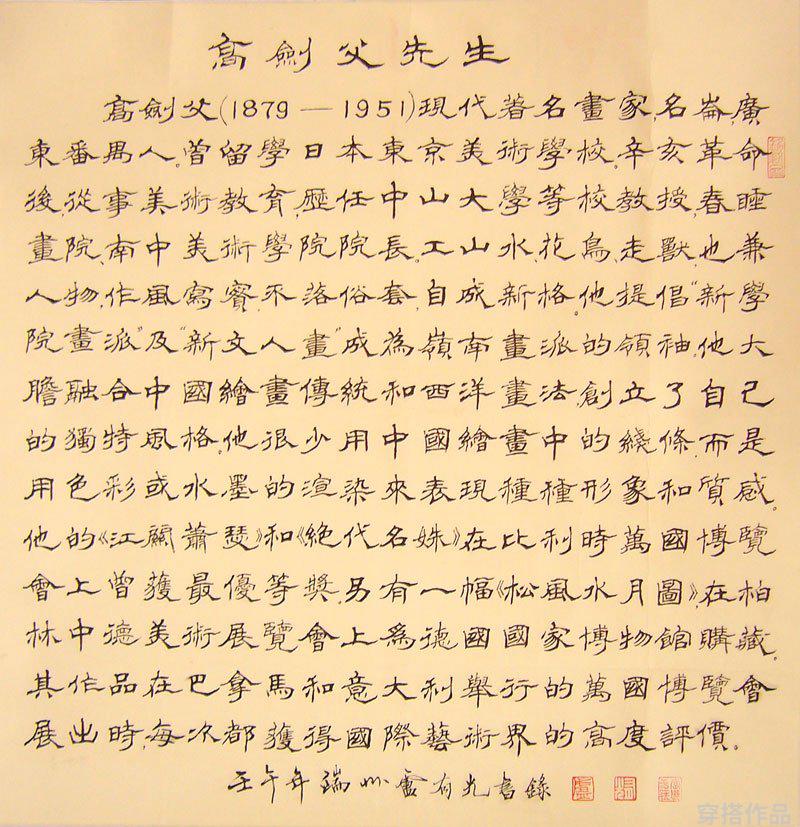 高劍父先生
高劍父(1879—1951)現代著名畫家,名崙,廣
東番禺人。曾留學日本東京美術學校。辛亥革命
後,從事美術教育,歷任中山大學等校教授,春睡
畫院,南中美術學院院長。工山水,花鳥,走獸,也兼
人物,作風寫實,不落俗套,自成新格。他提倡“新學
院畫派”及“新文人畫”成為嶺南畫派的領袖。他大
膽融合中國繪畫傳統和西洋畫法,創立了自己
的獨特風格。他很少用中國繪畫中的綫條,而是
用色彩或水墨的渲染來表現種種形象和質感。
他的《江關蕭瑟》和《絕代名姝》在比利時萬國博覽
會上曾獲最優等獎,另有一幅《松風水月圖》,在柏
林中德美術展覽會上為德國國家博物館購藏。
其作品在巴拿馬和意大利舉行的萬國博覽會
展出時,每次都獲得國際藝術界的高度評價。
壬午年瑞州盧有光書錄
穿搭作品